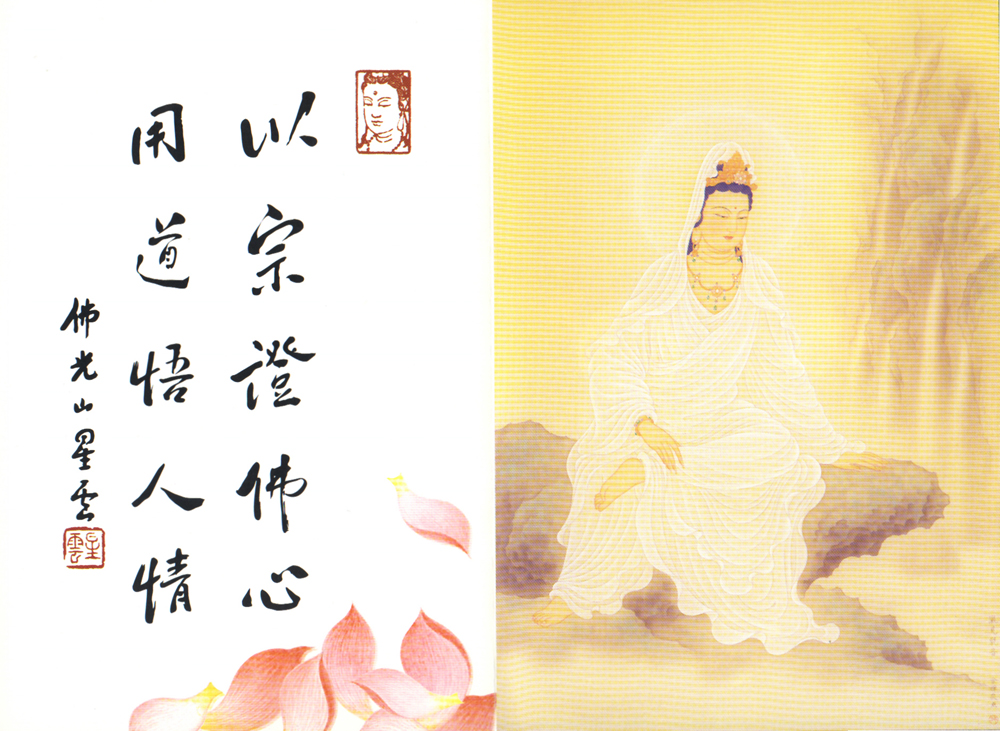 以宗證佛心
用道悟人情
佛光山星云
星雲